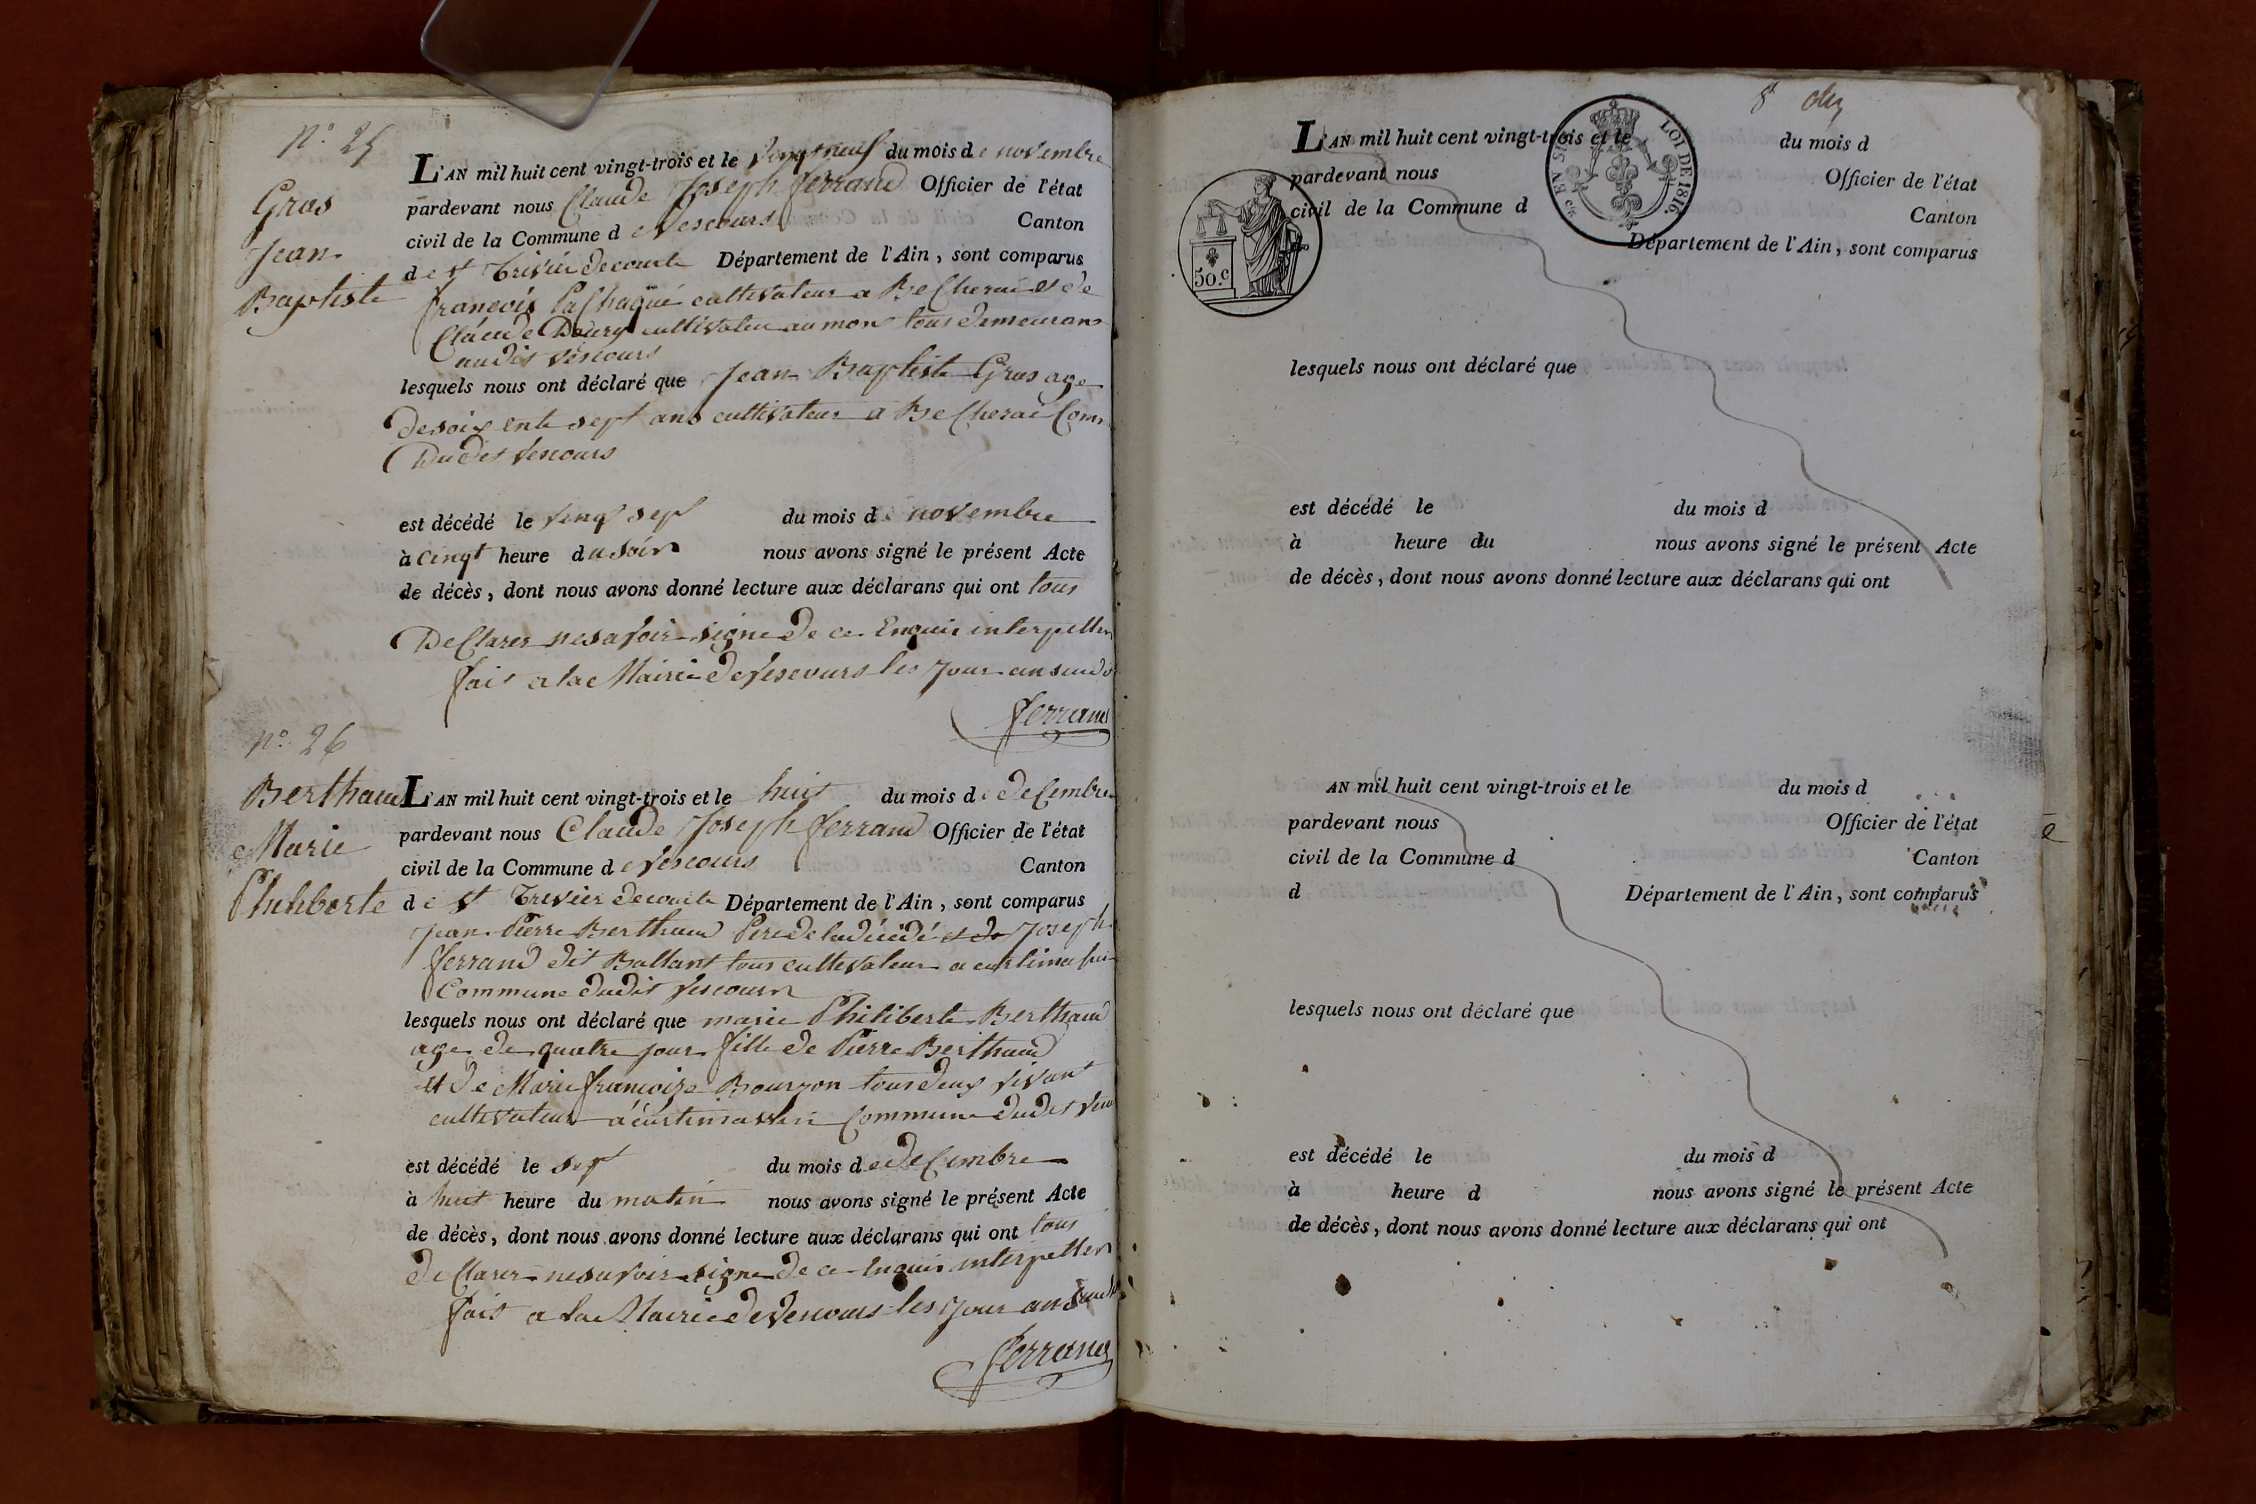 N° 25
Gros
Jean
Baptiste
L'AN mil huit cent vingt-trois et le vingt neuf du mois de novembre
pardevant nous Claude Joseph ferrand Officier de l'état
civil de la Commune de vescours Canton
de st Trivier decourte Département de l'Ain, sont comparus
francois cultivateur a Be Cherai et de
Claude cultivateur au mont tous demeurans
audit vescours
lesquels nous ont déclaré que Jean Baptiste Gros age
desoix ente sept ans cultivateur a Be Cherai Com
Dudit vescours
est décédé le vingt sept du mois de novembre
à cinqt heure du soir nous avons signé le présent Acte
de décès, dont nous avons donné lecture aux déclarans qui ont tous
De Clarer nesavoir signe de ce Enquis interpeller
fait a la Mairie de vescours les jour an susdit
ferrand
N° 26
Berthaud
Marie
Philiberte
L'AN mil huit cent vingt-trois et le huit du mois de deCembre
pardevant nous Claude Joseph ferrand Officier de l'état
civil de la Commune de vescours Canton
de st Trivier decourte Département de l'Ain, sont comparus
jean Pierre Berthaud Pere de ladécédé et de Joseph
ferrand dit Ballant tous cultivateur a
Commune dudit vescours
lesquels nous ont déclaré que marie Philiberte Berthaud
age de quatre jour fille de Pierre Berthaud
et De Marie francoize Bourgon tous deux vivant
cultivateur a Commune dudit
est décédé le sept du mois de deCembre
à huit heure du matin nous avons signé le présent Acte
de décès, dont nous avons donné lecture aux déclarans qui ont tous
de Clarer nesavoir signe de ce Enquis interpeller
fait a la Mairie de Vescours les jour an susdit
ferrand
LOI DE 1816.
50.c
L'AN mil huit cent vingt-trois et le du mois d
pardevant nous Officier de l'état
civil de la Commune d Canton
Département de l'Ain, sont comparus
lesquels nous ont déclaré que
est décédé le du mois d
à heure du nous avons signé le présent Acte
de décès, dont nous avons donné lecture aux déclarans qui ont
AN mil huit cent vingt-trois et le du mois d
pardevant nous Officier de l'état
civil de la Commune d Canton
d Département de l'Ain, sont comparus
lesquels nous ont déclaré que
est décédé le du mois d
à heure d nous avons signé le présent Acte
de décès, dont nous avons donné lecture aux déclarans qui ont